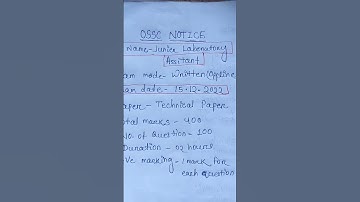 OSSC NOTICE
Name-Junior Laboratory
Assitant
am mode- Written (Offline
am date- 15.12.2022
aper- Technical Paper
otal marks- 400
No. of Question- 100
Duration- 02 hours
ve marking- 1 mark for
each question